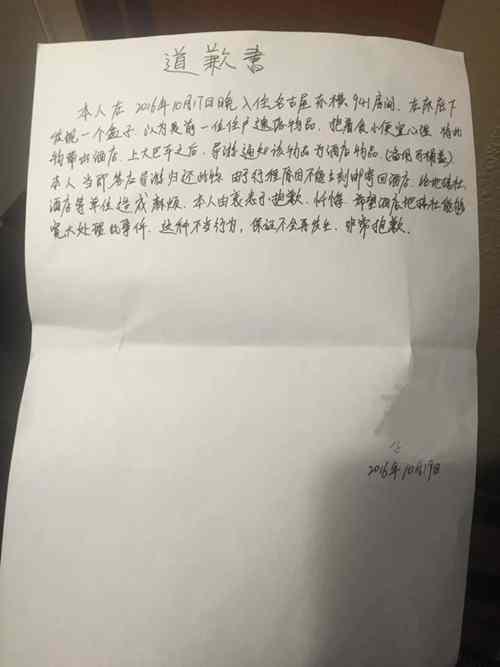 道歉書
本人在2016年10月17日晚入住名古屋东横941房间,在床底下
发现一个盒子,以为是前一位住户遗落物品,抱着贪小便宜心理将此
物带出酒店,上大巴车之后,导游通知该物品为酒店物品。(马桶
本人当即答应导游归还此物,由于行程原因不能立刻邮寄回酒店,给地接社
酒店等单位造成麻烦,本人由衷表示抱歉,忏悔,希望酒店地接社能够
宽大处理此事件,这种不当行为,保证不会再发生,非常抱歉。
2016年10月19日